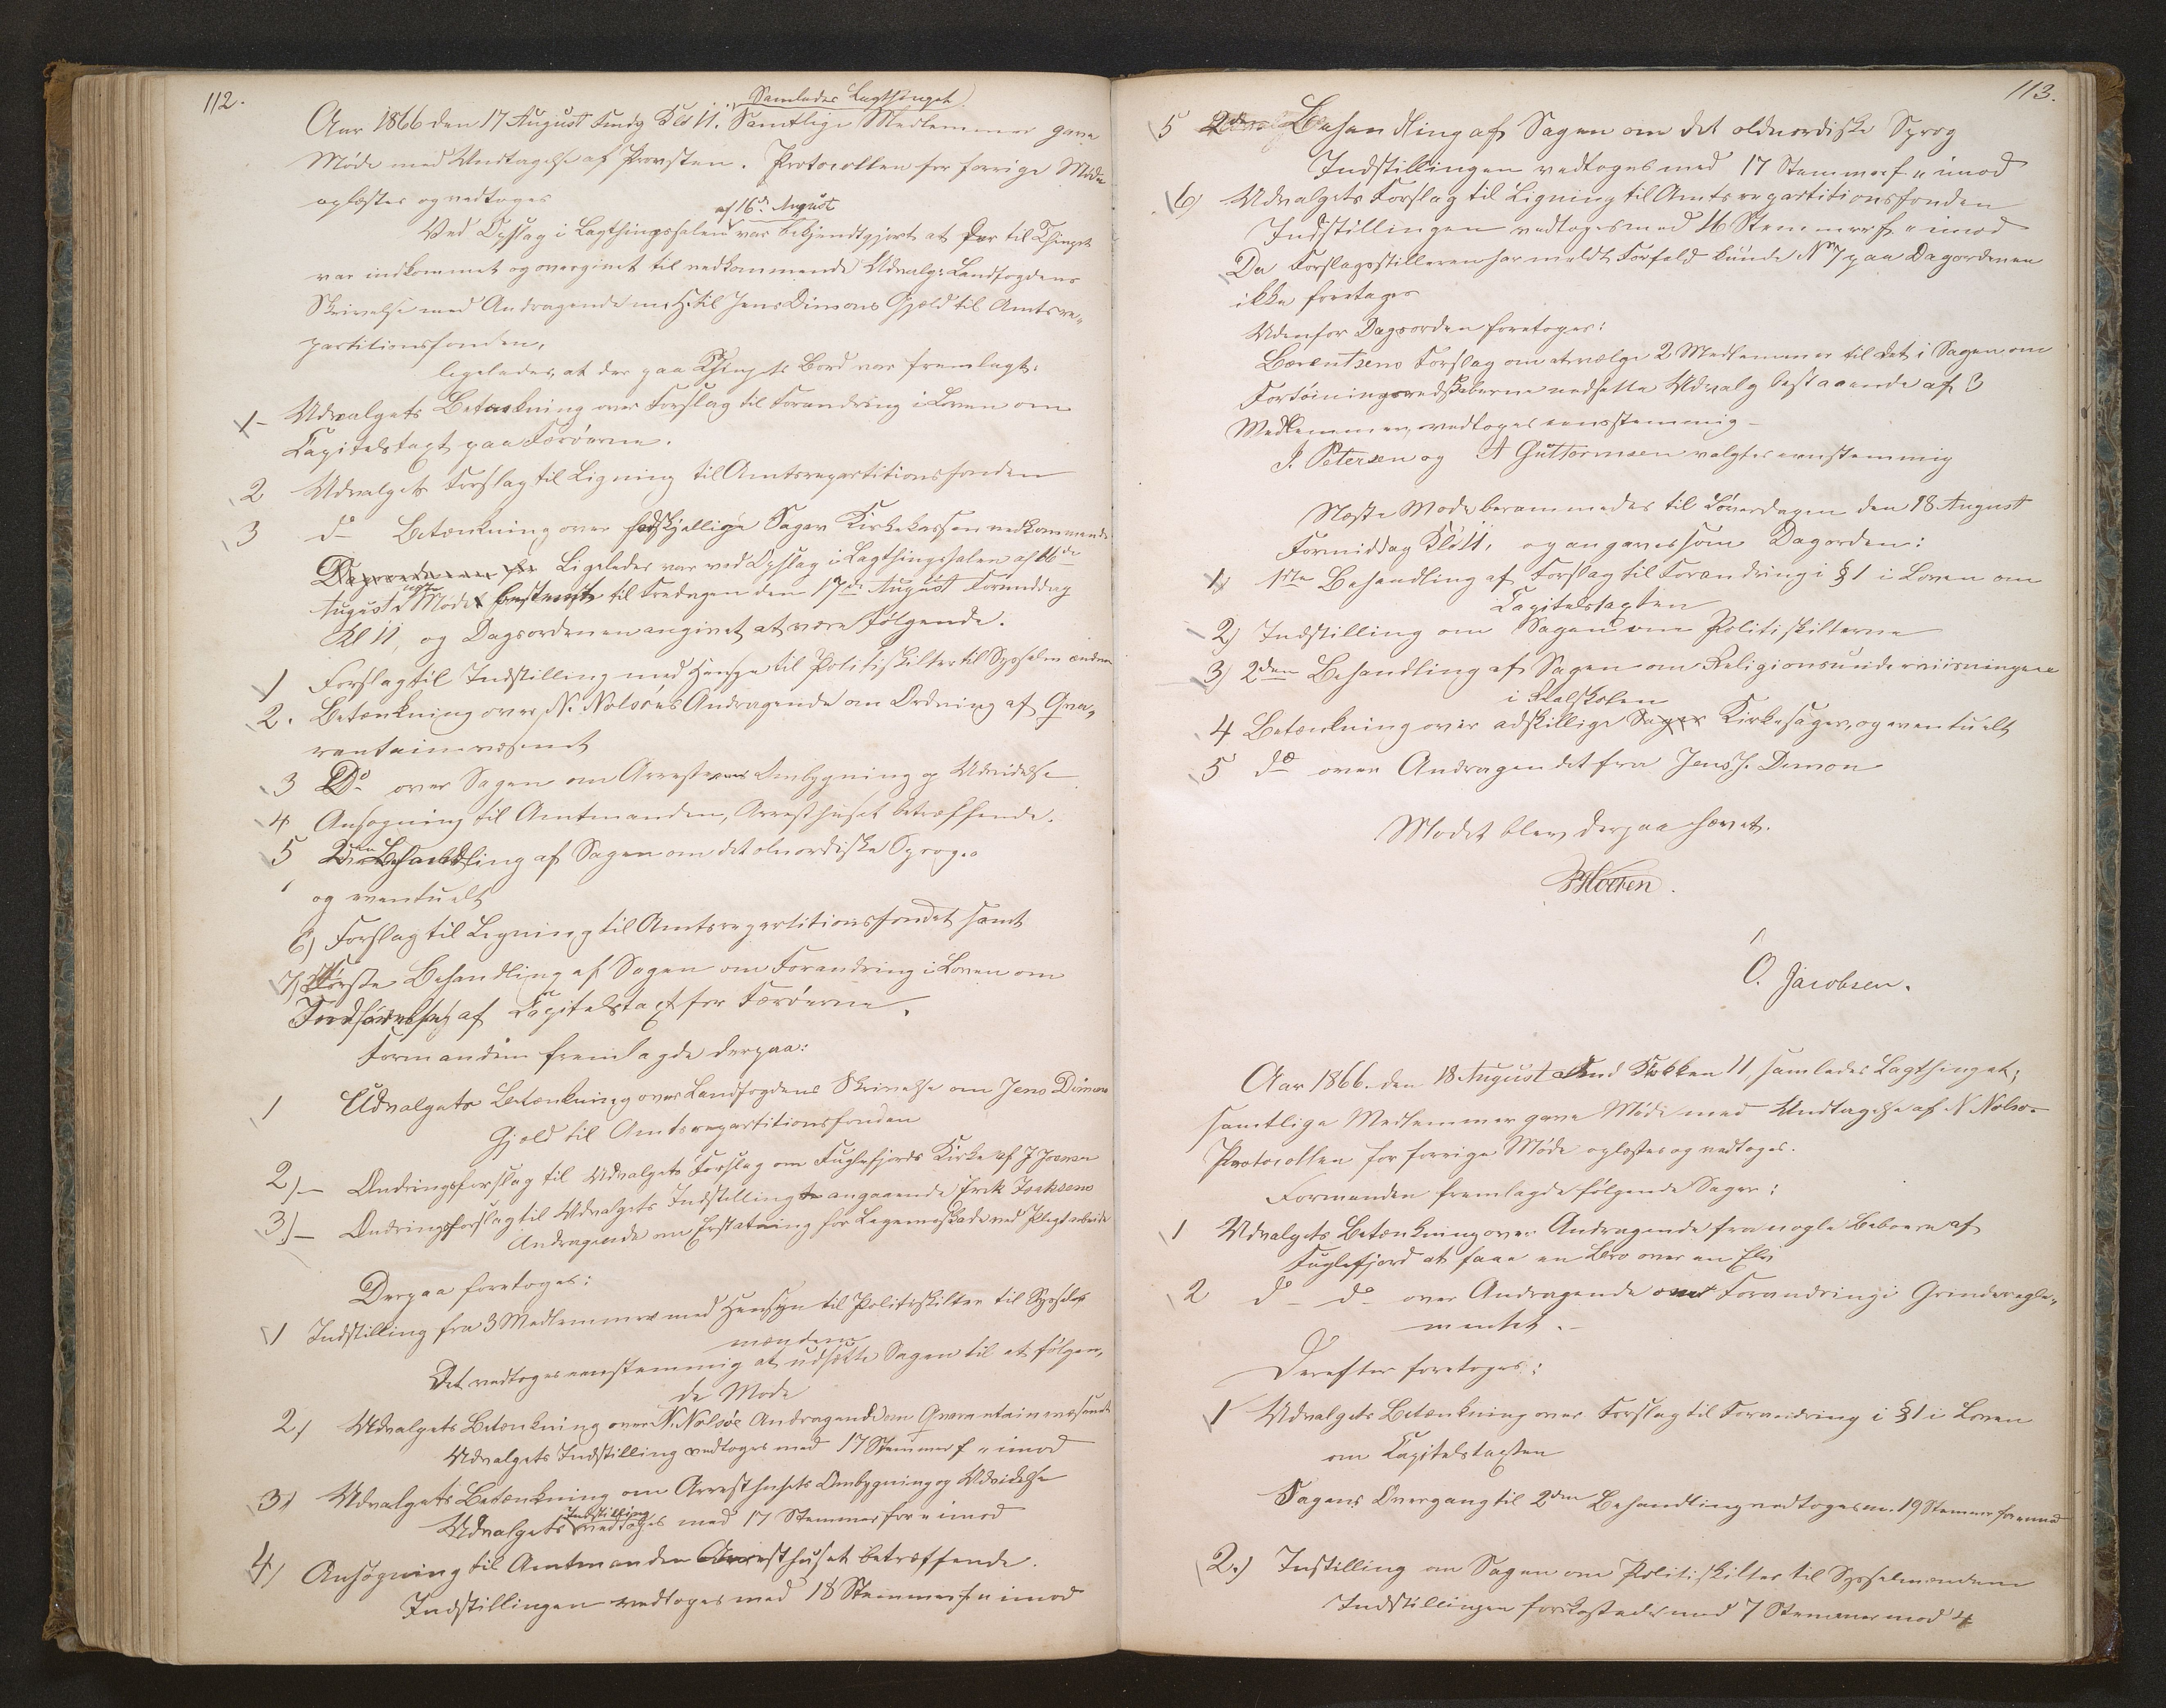 112.
Samledes Lagthinget
Aar 1866 den 17 August Fmdg Kl 11. Samtlige Medlemmer gave
Møde med Undtagelse af Provsten. Protocollen for forrige Møde
oplæstes og vedtoges
af 16de August
Ved Opslag i Lagthingssalen var bekjendtgjort at der til Thinget
var indkommet og overgivet til vedkommende Udvalg: Landfogdens
Skrivelse med Andragende m. H. til Jens Dimons Gjæld til Amtsre-
partitionsfonden,
ligeledes, at der paa Thingets Bord var fremlagt:
1- Udvalgets Betænkning over Forslag til Forandring i Loven om
Capitelstaxt paa Færøerne.
2 Udvalgets Forslag til Ligning til Amtsrepartitionsfonden
3 do Betænkning over forskjellige Sager Kirkekassen vedkommende
Dagsordenen for Ligeledes var ved Opslag i Lagthingssalen af 16de
August Mødet bestemt til Fredagen den 17de August Formiddag
Kl 11, og Dagsordenen angivet at være følgende.
1 Forslag til Indstilling med Hensyn til Politiskilter til Sysselmændene
2. Betænkning over N. Nolsøes Andragende om Ordning af Qva-
rantainevæsenet
3 Do over Sagen om Arrestens Ombygning og Udvidelse
4 Ansøgning til Amtmanden, Arresthuset betræffende.
5 2den Behandling af Sagen om det olnordiske Sprog.
og eventuelt
6) Forslag til Ligning til Amtsrepartitionsfondet samt
7) Første Behandling af Sagen om Forandring i Loven om
Indførelse af Capitelstaxt for Færøerne.
Formanden fremlagde derpaa:
1 Udvalgets Betænkning over Landfogdens Skrivelse om Jens Dimons
Gjæld til Amtsrepartitionsfonden
2)- Ændringsforslag til Udvalgets Forslag om Fuglefjords Kirke af J Joensen
3)- Ændringsforslag til Udvalgets Indstilling angaaende Erik Isaksens
Andragende om Erstatning for Legemsskade ved Pligtarbeide
Derpaa foretoges:
1 Indstilling fra 3 Medlemmer med Hensyn til Politiskilter til Syssel-
mændene
Det vedtoges eenstemmig at udsætte Sagen til et følgen-
de Møde
2) Udvalgets Betænkning over N. Nolsøe Andragende om Qvarantainevæsenet
Udvalgets Indstilling vedtoges med 17 Stemmer f " imod
3) Udvalgets Betænkning om Arresthusets Ombygning og Udvidelse
Indstilling
Udvalgets vedtoges med 17 Stemmer for " imod
4) Ansøgning til Amtmanden Arresthuset betræffende.
Indstillingen vedtoges med 18 Stemmer f " imod
113.
5 2den Behandling af Sagen om det oldnordiske Sprog
Indstillingen vedtoges med 17 Stemmer f " imod
6) Udvalgets Forslag til Ligning til Amtsrepartitionsfonden
Indstillingen vedtoges med 16 Stemmer f " imod
Da Forslagsstilleren har meldt Forfald kunde No 7 paa Dagordenen
ikke foretages
Udenfor Dagsorden foretoges:
Bærentsens Forslag om at vælge 2 Medlemmer til det i Sagen om
Fortøiningsredskaberne nedsatte Udvalg bestaaende af 3
Medlemmer, vedtoges eensstemmig -
J. Petersen og A Guttormsen valgtes eenstemmig
Næste Møde berammedes til Løverdagen den 18 August
Formiddag Kl 11, og angaves som Dagorden:
1) 1ste Behandling af Forslag til Forandring i § 1 i Loven om
Capitelstaxten
2) Indstilling om Sagen om Politiskilterne
3) 2den Behandling af Sagen om Religionsunderviisningen
i Realskolen
4 Betænkning over adskillige Sager Kirkesager, og eventuelt
5 do over Andragendet fra Jens J. Dimon
Mødet blev derpaa hævet.
O. Jacobsen.
Aar 1866 den 18 August Fmd Klokken 11, samledes Lagthinget;
samtlige Medlemmer gave Møde med Undtagelse af N Nolsø.
Protocollen for forrige Møde oplæstes og vedtoges.
Formanden fremlagde følgende Sager:
1 Udvalgets Betænkning over Andragende fra nogle Beboere af
Fuglefjord at faae en Bro over en Elv
2 do - do - over Andragende om Forandring i Grinderegle-
mentet.-
Derefter foretoges:
1 Udvalgets Betænkning over Forslag til Forandring i § 1 i Loven
om Capitelstaxten
Sagens Overgang til 2den Behandling vedtoges m. 19 Stemmer for " imod
2.) Instilling om Sagen om Politiskilter til Sysselmændene
Indstillingen forkastedes med 7 Stemmer mod 4